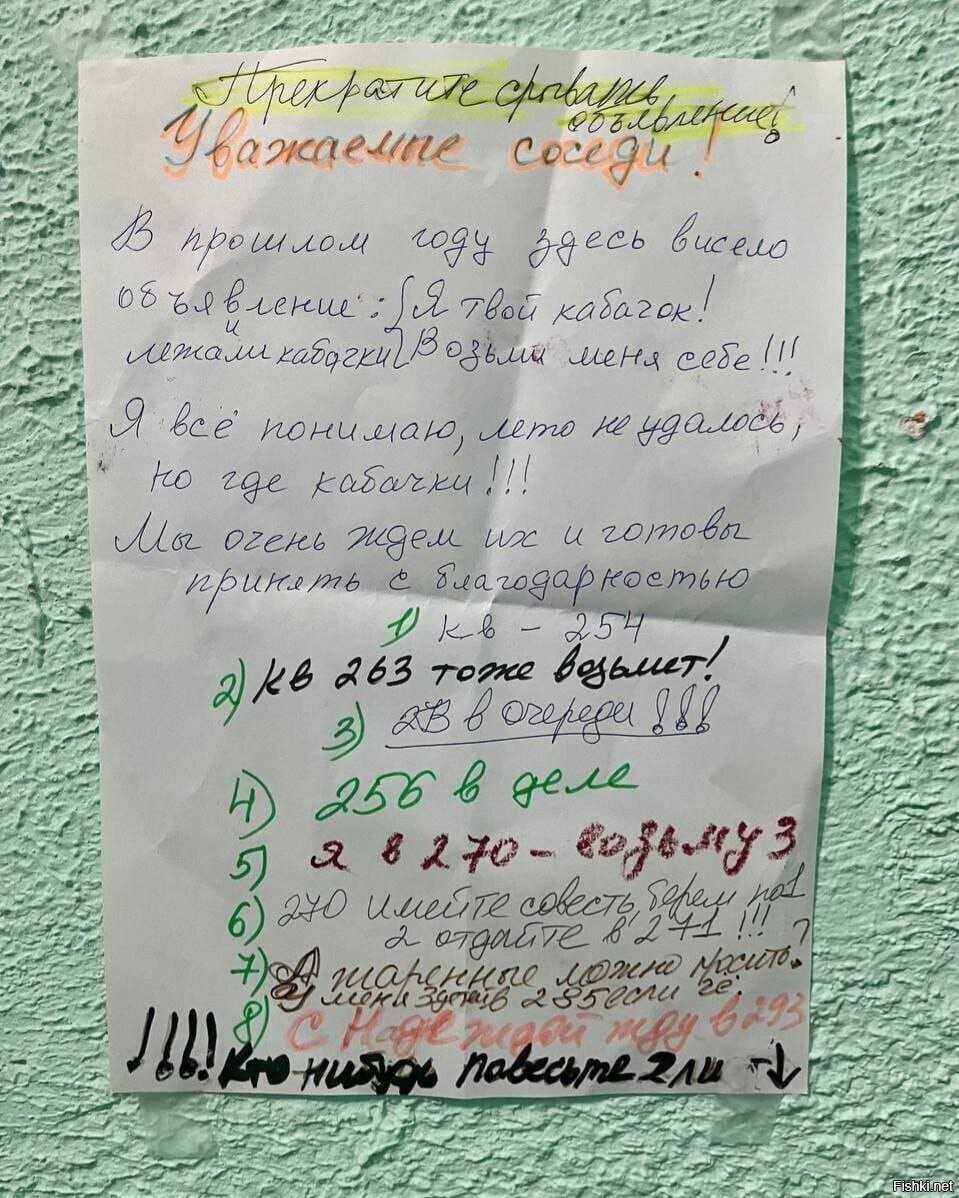 Прекратите срывать
объявление!
Уважаемые соседи!
В прошлом году здесь висело
объявление: Я твой кабачок!
и
лежали кабачки Возьми меня себе!!!
Я всё понимаю, лето не удалось,
но где кабачки!!!
Мы очень ждем их и готовы
принять с благодарностью
1) кв - 254
2) кв 263 тоже возьмет!
3) в очереди!!!
4) 256 в деле
5) я в 270 - возьму 3
6) 270 имейте совесть, берем по 1
2 отдайте в 271!!!
7) А жаренные можно просить?
У меня в 235 если че.
8) С Надеждой жду в 293
!!!! Кто нибудь повесьте 2 ли →↓
Fishki.net